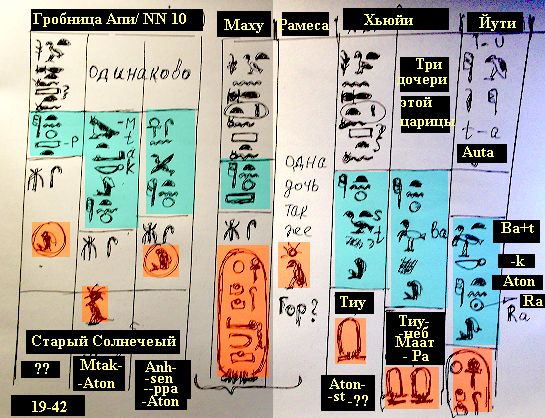 Гробница Апи/ NN 10
Маху
Рамеса
Хьюйи
Йути
одинаково
Три
дочери
этой
царицы
t-a
Auta
-P
-M
t
a
k
одна
дочь
так
же
s
t
ва
Ba+t
-k
Aton
Ra
Ra
Гор?
Тиу
Тиу-
неб
Маат
- Ра
Старый Солнечеый
??
Mtak-
-Aton
Anh-
-sen
--ppa
-Aton
Aton-
-st -??
19-42